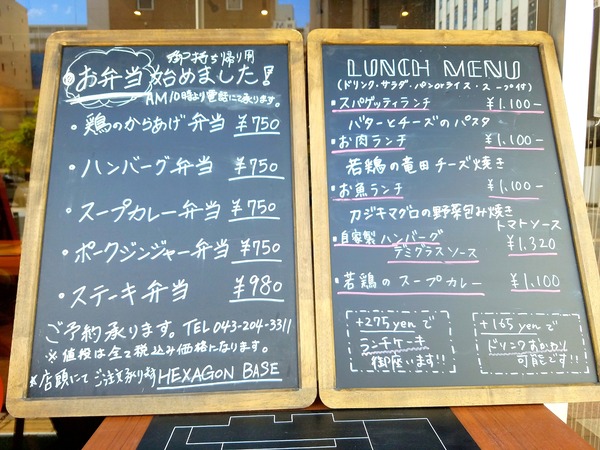 御持ち帰り用
お弁当始めました!
AM10時より電話にて承ります。
・鶏のからあげ弁当 ¥750
・ハンバーグ弁当 ¥750
・スープカレー弁当 ¥750
・ポークジンジャー弁当 ¥750
・ステーキ弁当 ¥980
ご予約承ります。TEL 043-204-3311
※値段は全て税込み価格になります。
※店頭にてご注文承り〼 HEXAGON BASE
LUNCH MENU
(ドリンク・サラダ・パンorライス・スープ付)
・スパゲッティランチ ¥1,100-
バターとチーズのパスタ
・お肉ランチ ¥1,100-
若鶏の竜田チーズ焼き
・お魚ランチ ¥1,100-
カジキマグロの野菜包み焼き
トマトソース
・自家製ハンバーグ ¥1,320
デミグラスソース
・若鶏のスープカレー ¥1,100
+275yenで
ランチケーキ
御座います!!
+165yenで
ドリンクおかわり
可能です!!